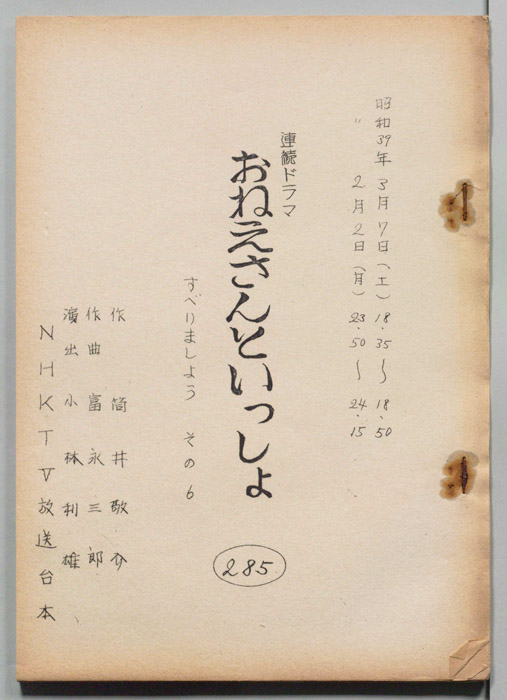 昭和39年3月7日(土)18.35〜18.50
〃 2月2日(月)23.50〜24.15
連続ドラマ
おねえさんといっしょ
すべりましょう その6
285
作 筒井敬介
作曲 富永三郎
演出 小林利雄
NHKTV放送台本